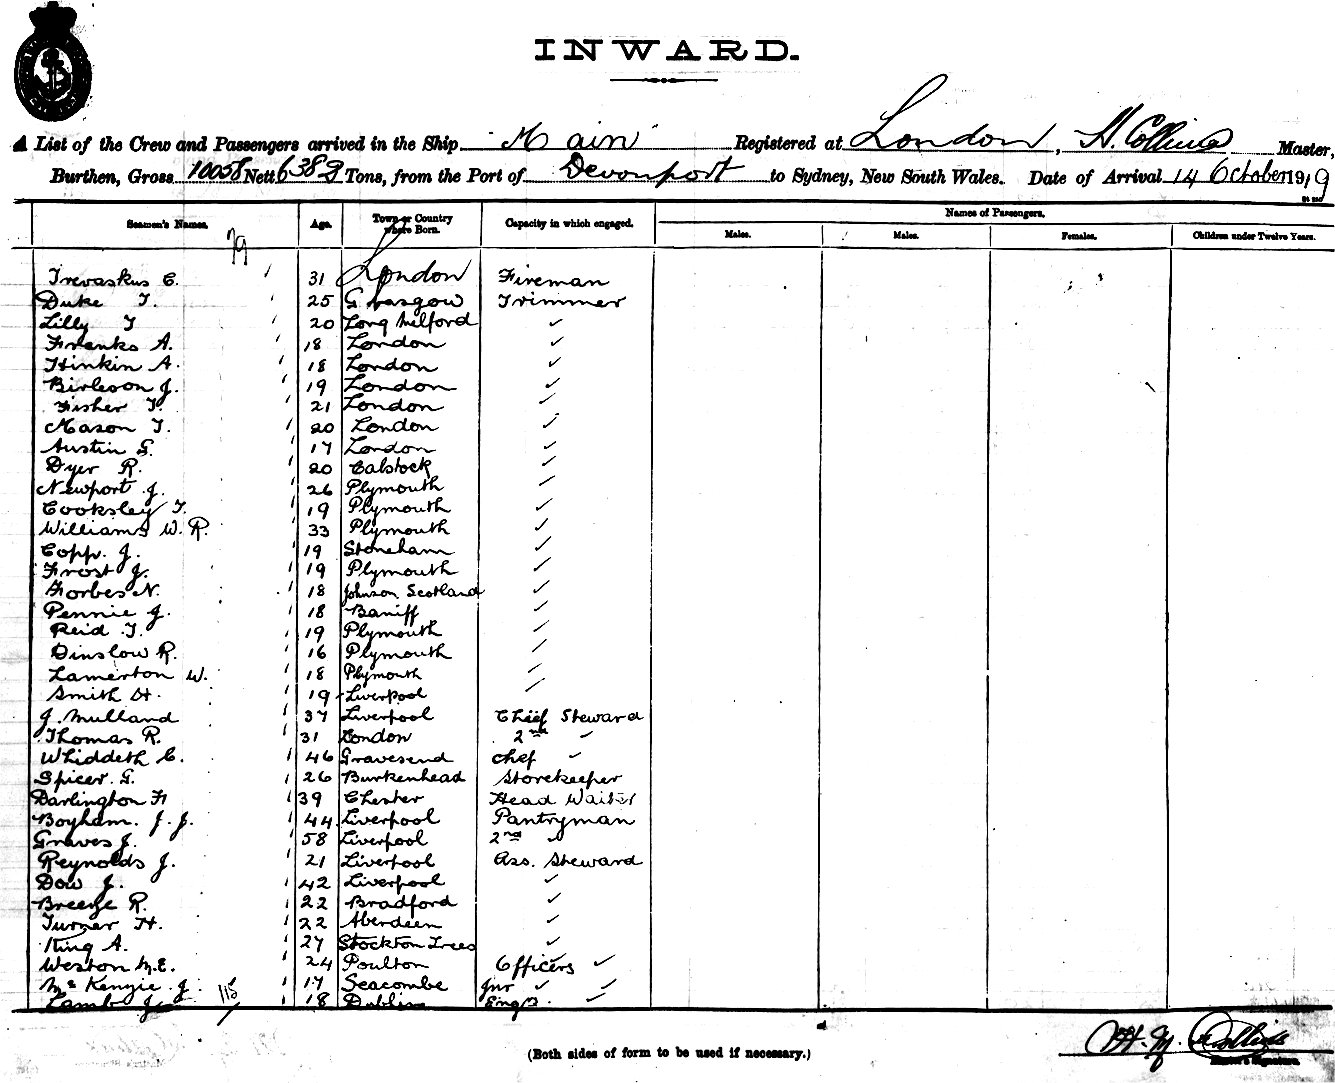 INWARD.
A List of the Crew and Passengers arrived in the Ship "Main" Registered at London, H. Collins Master,
Burthen, Gross 10058 Nett 6389 Tons, from the Port of Devonport to Sydney, New South Wales. Date of Arrival 14 October 1919
Seamen's Names. Age. Town or Country where Born. Capacity in which engaged. Names of Passengers.
Males. Males. Females. Children under Twelve Years.
79
Trevaskus C. 31 London Fireman
Duke T. 25 Glasgow Trimmer
Lilly T 20 Long Milford ✓
Franks A. 18 London ✓
Hinkin A. 18 London ✓
Birleson J. 19 London ✓
Fisher T. 21 London ✓
Mason T. 20 London ✓
Austin G. 17 London ✓
Dyer R. 20 Calstock ✓
Newport J. 26 Plymouth ✓
Cooksley T. 19 Plymouth ✓
Williams W. R. 33 Plymouth ✓
Copp. J. 19 Stoneham ✓
Frost J. 19 Plymouth ✓
Forbes N. 18 Johnson Scotland ✓
Pennie J. 18 Baniff ✓
Reid T. 19 Plymouth ✓
Dinslow R. 16 Plymouth ✓
Lamerton W. 18 Plymouth ✓
Smith H. 19 Liverpool ✓
J. Mulland 37 Liverpool Chief Steward
Thomas R. 31 London 2nd ✓
Whiddeth C. 46 Gravesend Chef ✓
Spicer G. 26 Burkenhead Storekeeper
Darlington H 39 Chester Head Waiter
Boyham. J. J. 44 Liverpool Pantryman
Graves J. 58 Liverpool 2nd ✓
Reynolds J. 21 Liverpool Ass. Steward
Dow J. 42 Liverpool ✓
Breeze R. 22 Bradford ✓
Turner H. 22 Aberdeen ✓
King A. 27 Stockton Trees ✓
Weston M.E. 24 Poulton Officers ✓
McKenzie J. 17 Seacombe Jnr ✓ ✓
Lamb J. 115 18 Dublin Eng ✓
(Both sides of form to be used if necessary.)
H. M. Collins
Master's Signature.